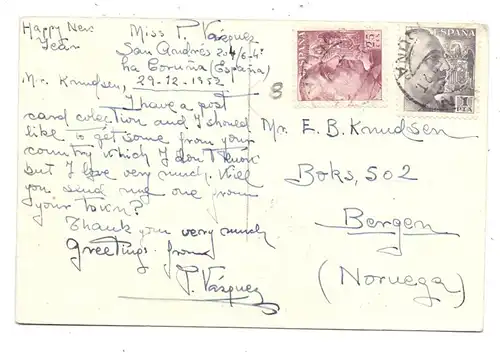 Happy New
Year
Miss P. Vázquez
San Andrés 204/6-4º
La Coruña (España)
29-12-1952
Mr. Knudsen,
I have a post
card colection and I should
like to get some from your
country which I don't know
but I love very much. Will
you send me one from
your town?
Thank you very much
Greetings from
P. Vázquez
8
ESPAÑA
ESPAÑA
1
PTA
Mr. E. B. Knudsen
Boks, 502
Bergen
(Noruega)